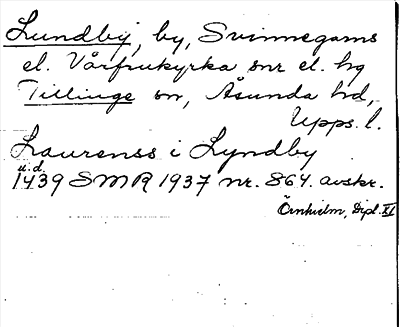 Lundby, by, Svinnegarns
el. Vårfrukyrka snr el. hg
Tillinge sn, Åsunda hd,
Upps. l.
Laurenss i Lyndby
u.d.
1439 SMR 1937 nr. 864. avskr.
Örnhielm, Dipl. XI